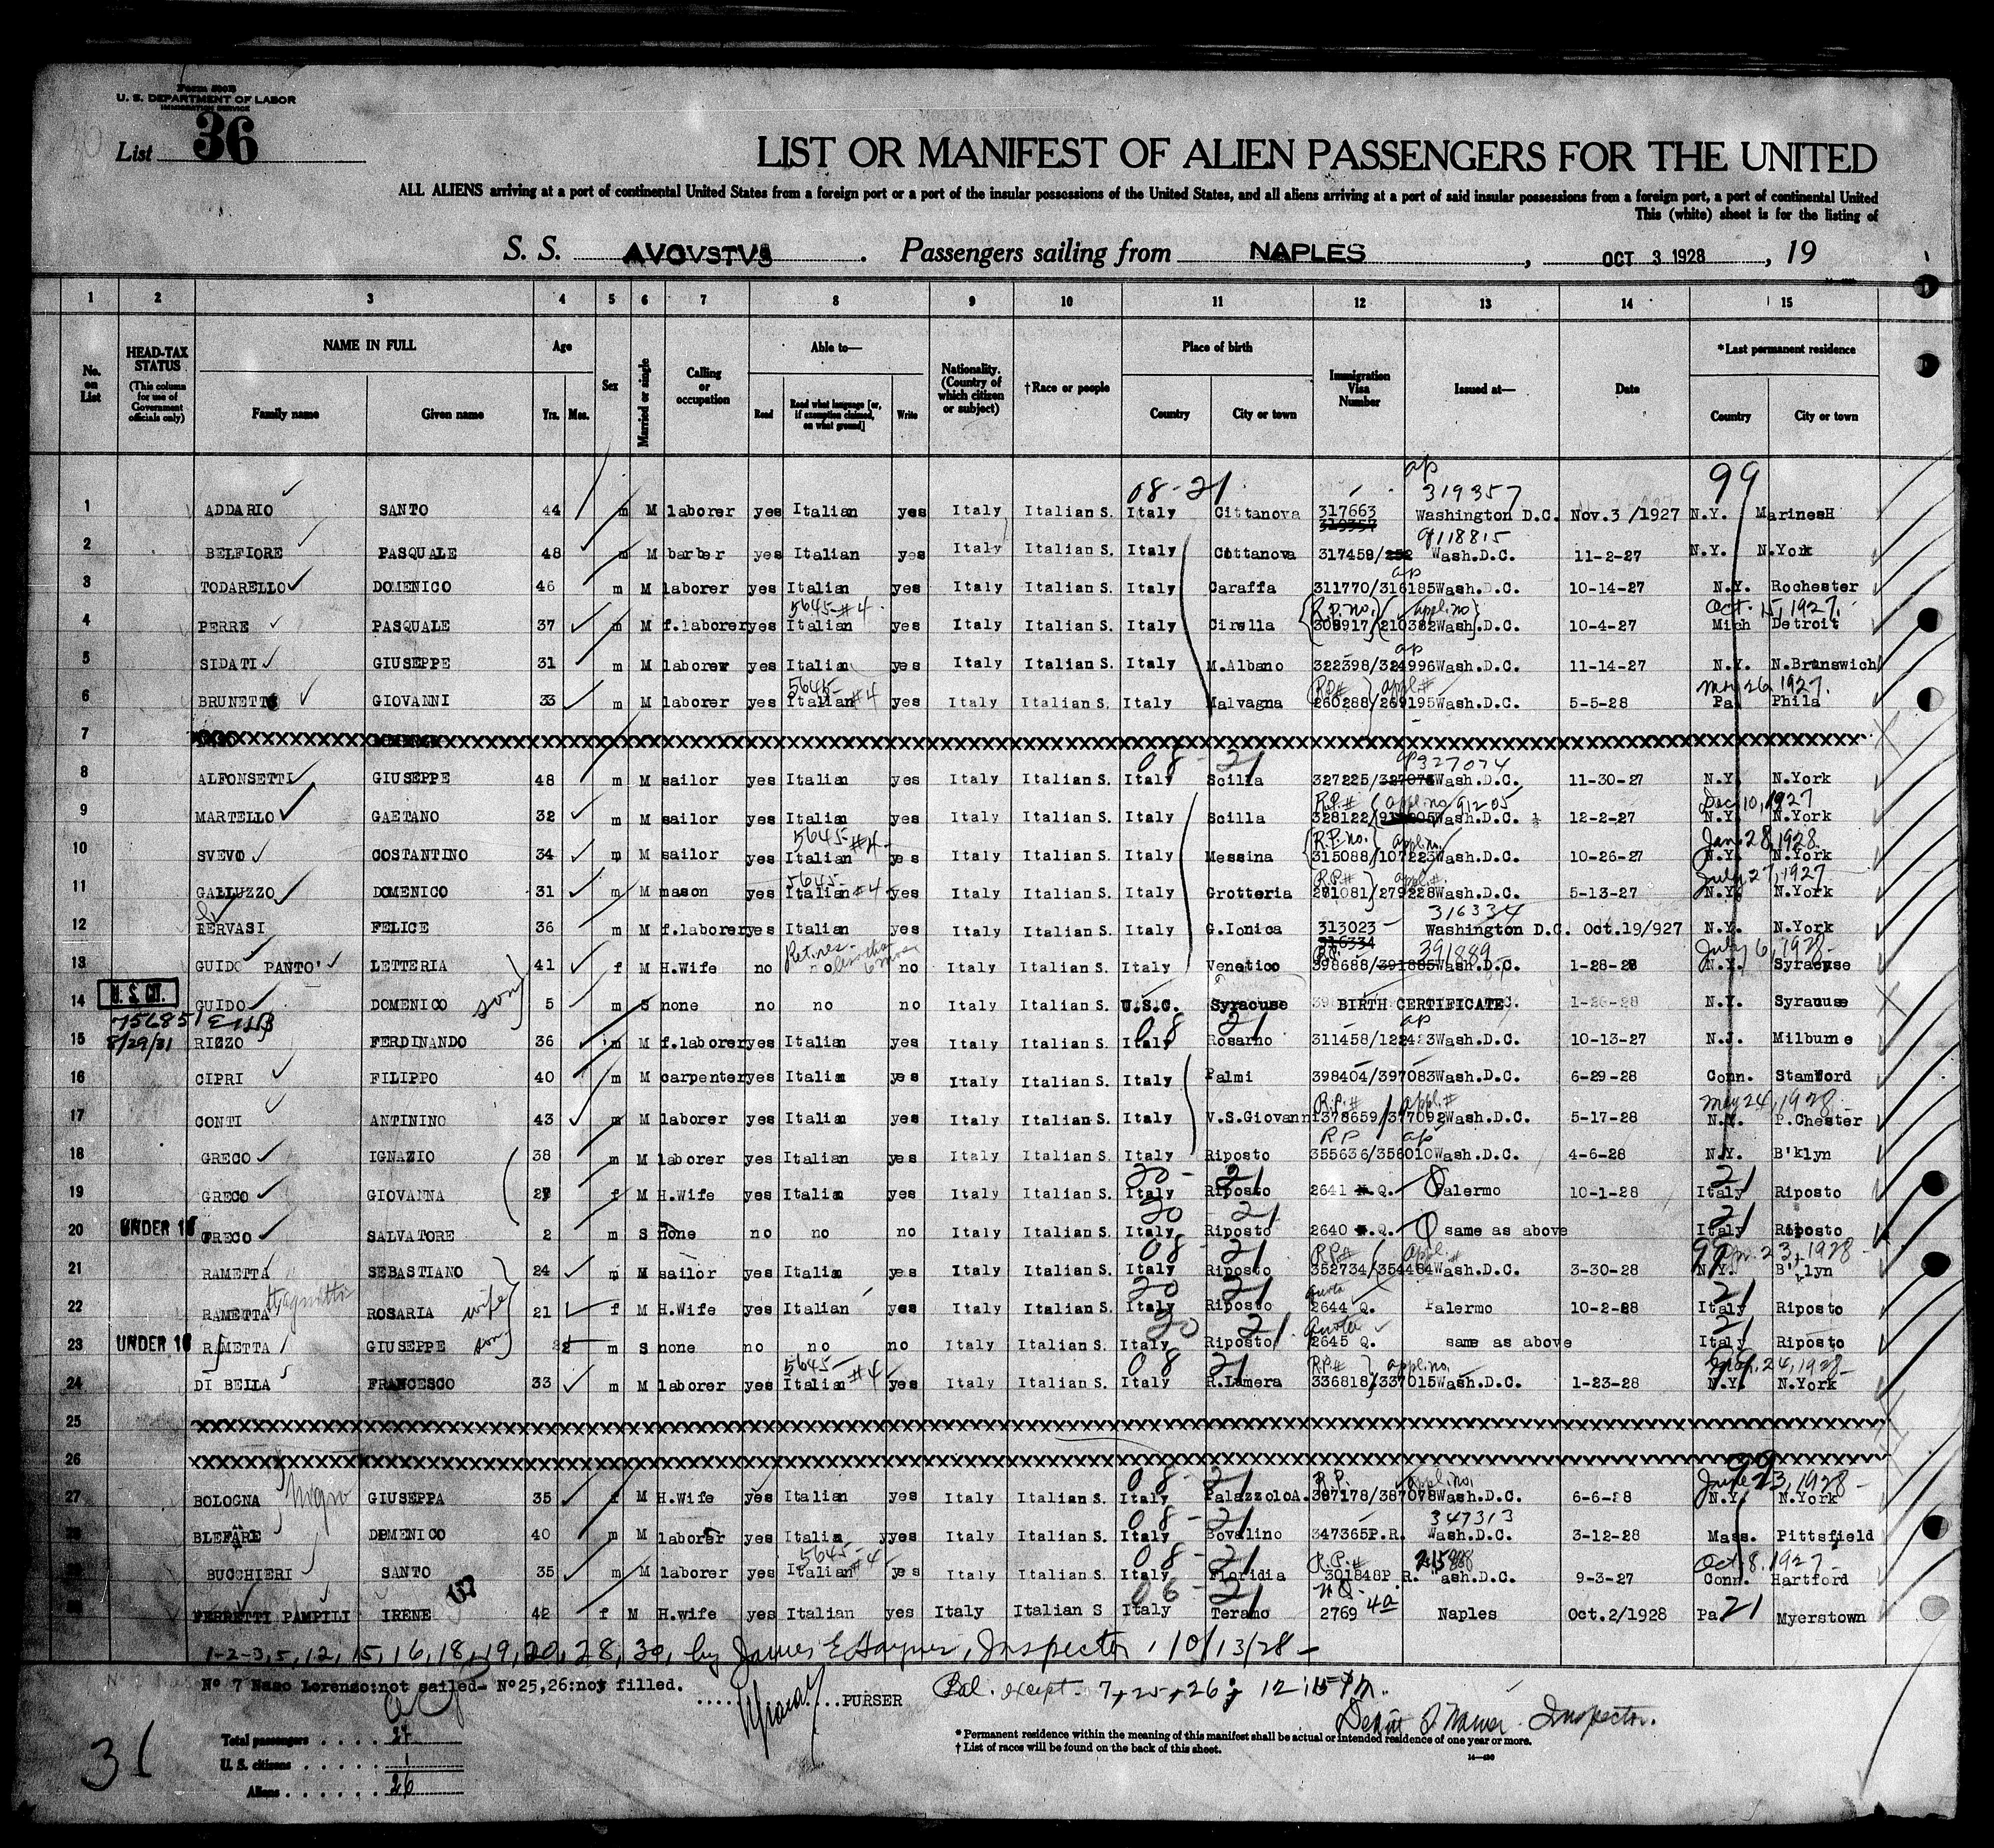 Form 500B
U. S. DEPARTMENT OF LABOR
IMMIGRATION SERVICE
List 36
LIST OR MANIFEST OF ALIEN PASSENGERS FOR THE UNITED
ALL ALIENS arriving at a port of continental United States from a foreign port or a port of the insular possessions of the United States, and all aliens arriving at a port of said insular possessions from a foreign port, a port of continental United
This (white) sheet is for the listing of
S. S. AVGVSTVS . Passengers sailing from NAPLES , OCT 3 1928 , 19
1 2 3 4 5 6 7 8 9 10 11 12 13 14 15
No. on List HEAD-TAX STATUS (This column for use of Government officials only) NAME IN FULL Family name Given name Age Yrs. Mos. Sex Married or single Calling or occupation Able to— Read Read what language [or, if exemption claimed, on what ground] Write Nationality. (Country of which citizen or subject) †Race or people Place of birth Country City or town Immigration Visa Number Issued at— Date *Last permanent residence Country City or town
ap
08-21 319357 99
1 ADDARIO SANTO 44 m M laborer yes Italian yes Italy Italian S. Italy Cittanova 317663 Washington D.C. Nov.3 /1927 N.Y. MarinesH
319357
118815
2 BELFIORE PASQUALE 48 m M barber yes Italian yes Italy Italian S. Italy Cittanova 317458/ Wash.D.C. 11-2-27 N.Y. N.York
ap
3 TODARELLO DOMENICO 46 m M laborer yes Italian yes Italy Italian S. Italy Caraffa 311770/316185 Wash.D.C. 10-14-27 N.Y. Rochester
5645-#4 R.P.no. appl.no Oct. 15, 1927.
4 PERRE PASQUALE 37 m M f.laborer yes Italian yes Italy Italian S. Italy Cirella 308917/210382 Wash.D.C. 10-4-27 Mich Detroit
ap
5 SIDATI GIUSEPPE 31 m M laborer yes Italian yes Italy Italian S. Italy M.Albano 322398/324996 Wash.D.C. 11-14-27 N.Y. N.Brunswich
5645-#4 R.P.# appl.# 26, 1927.
6 BRUNETTO GIOVANNI 33 m M laborer yes Italian yes Italy Italian S. Italy Malvagna 260288/269195 Wash.D.C. 5-5-28 Pa Phila
7 XXXXXXXXXXXXXXXXXXXX
08-21 ap 327074
8 ALFONSETTI GIUSEPPE 48 m M sailor yes Italian yes Italy Italian S. Italy Scilla 327225/327076 Wash.D.C. 11-30-27 N.Y. N.York
R.P.# appl.no 91205 Dec 10, 1927
9 MARTELLO GAETANO 32 m M sailor yes Italian yes Italy Italian S. Italy Scilla 328122/ Wash.D.C. 12-2-27 N.Y. N.York
5645-#4 R.P.no. appl.no. Jan. 28, 1928.
10 SVEVO COSTANTINO 34 m M sailor yes Italian yes Italy Italian S. Italy Messina 315088/107223 Wash.D.C. 10-26-27 N.Y. N.York
5645-#4 R.P.# appl.#. July 27, 1927
11 GALLUZZO DOMENICO 31 m M mason yes Italian yes Italy Italian S. Italy Grotteria 281081/279228 Wash.D.C. 5-13-27 N.Y. N.York
316334
12 FERVASI FELICE 36 m M f.laborer yes Italian yes Italy Italian S. Italy G.Ionica 313023 Washington D.C. Oct.19/927 N.Y. N.York
316334
R.P. 391889 July 6, 1928-
13 GUIDO PANTO' LETTERIA 41 f M H.Wife no no no Italy Italian S. Italy Venetico 398688/391885 Wash.D.C. 1-28-28 N.Y. Syracuse
U. S. CIT.
14 GUIDO DOMENICO son 5 m S none no no no Italy Italian S. U.S.C. Syracuse BIRTH CERTIFICATE 1-26-28 N.Y. Syracuse
756851 08 21 ap
15 8/29/31 RIZZO FERDINANDO 36 m M f.laborer yes Italian yes Italy Italian S. Italy Rosarno 311458/122423 Wash.D.C. 10-13-27 N.J. Milburne
16 CIPRI FILIPPO 40 m M carpenter yes Italian yes Italy Italian S. Italy Palmi 398404/397083 Wash.D.C. 6-29-28 Conn. Stamford
R.P.# appl.# May 24, 1928-
17 CONTI ANTININO 43 m M laborer yes Italian yes Italy Italian S. Italy V.S.Giovanni 378659/377092 Wash.D.C. 5-17-28 N.Y. P.Chester
RP ap
18 GRECO IGNAZIO 38 m M laborer yes Italian yes Italy Italian S. Italy Riposto 355636/356010 Wash.D.C. 4-6-28 N.Y. B'klyn
20-21 21
19 GRECO GIOVANNA 27 f M H.Wife yes Italian yes Italy Italian S. Italy Riposto 2641 Q. Palermo 10-1-28 Italy Riposto
20 21 21
20 UNDER 16 GRECO SALVATORE 2 m S none no no no Italy Italian S. Italy Riposto 2640 Q. same as above Italy Riposto
08-21 R.P.# appl.# 99 Apr. 23, 1928-
21 RAMETTA SEBASTIANO 24 m M sailor yes Italian yes Italy Italian S. Italy Riposto 352734/354464 Wash.D.C. 3-30-28 N.Y. B'klyn
20 21 Quota 21
22 RAMETTA ROSARIA wife 21 f M H.Wife yes Italian yes Italy Italian S. Italy Riposto 2644 Q. Palermo 10-2-28 Italy Riposto
20 21. Quota 21
23 UNDER 16 RAMETTA GIUSEPPE son m S none no no no Italy Italian S. Italy Riposto 2645 Q. same as above Italy Riposto
5645-#4 08 21 R.P.# appl.no. 24, 1928-
24 DI BELLA FRANCESCO 33 m M laborer yes Italian yes Italy Italian S. Italy R.Lumera 336818/337015 Wash.D.C. 1-23-28 N.Y. N.York
25 XXXXXXXXXXXXXXXXXXXX
26 XXXXXXXXXXXXXXXXXXXX
99
08-21 R.P. appl.no. June 23, 1928-
27 BOLOGNA Nigro GIUSEPPA 35 f M H.Wife yes Italian yes Italy Italian S. Italy PalazzoloA. 387178/387078 Wash.D.C. 6-6-28 N.Y. N.York
08-21 347313
28 BLEFARE DOMENICO 40 m M laborer yes Italian yyes Italy Italian S. Italy Bovalino 347365P.R. Wash.D.C. 3-12-28 Mass. Pittsfield
5645-#4 08-21 R.P.# Oct. 8, 1927-
BUCCHIERI SANTO 35 m M laborer yes Italian yes Italy Italian S. Italy Floridia 301848P R. Wash.D.C. 9-3-27 Conn. Hartford
06-21 n Q-
FERRETTI PAMPILI IRENE 42 f M H.wife yes Italian yes Italy Italian S Italy Teramo 2769 4a Naples Oct.2/1928 Pa 21 Myerstown
1-2-3, 5, 12, 15, 16, 18, 19, 20, 28, 30, by James E. , Inspector, 10/13/28-
Nº 7 Naso Lorenzo:not sailed- Nº25,26:not filled. PURSER Bal. except 7, 25, 26; 12:15 PM.
Inspector.
Total passengers . . . . 27
U. S. citizens . . . . . 1
Aliens . . . . . . 26
31
* Permanent residence within the meaning of this manifest shall be actual or intended residence of one year or more.
† List of races will be found on the back of this sheet.